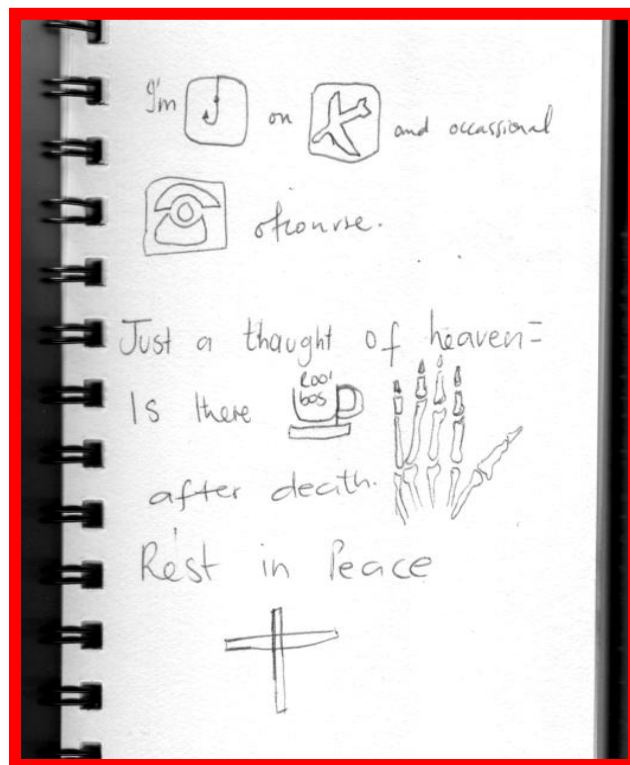 I'm on and occassional
ofcourse.
Just a thaught of heaven=
Is there Rooi bos
after death.
Rest in Peace